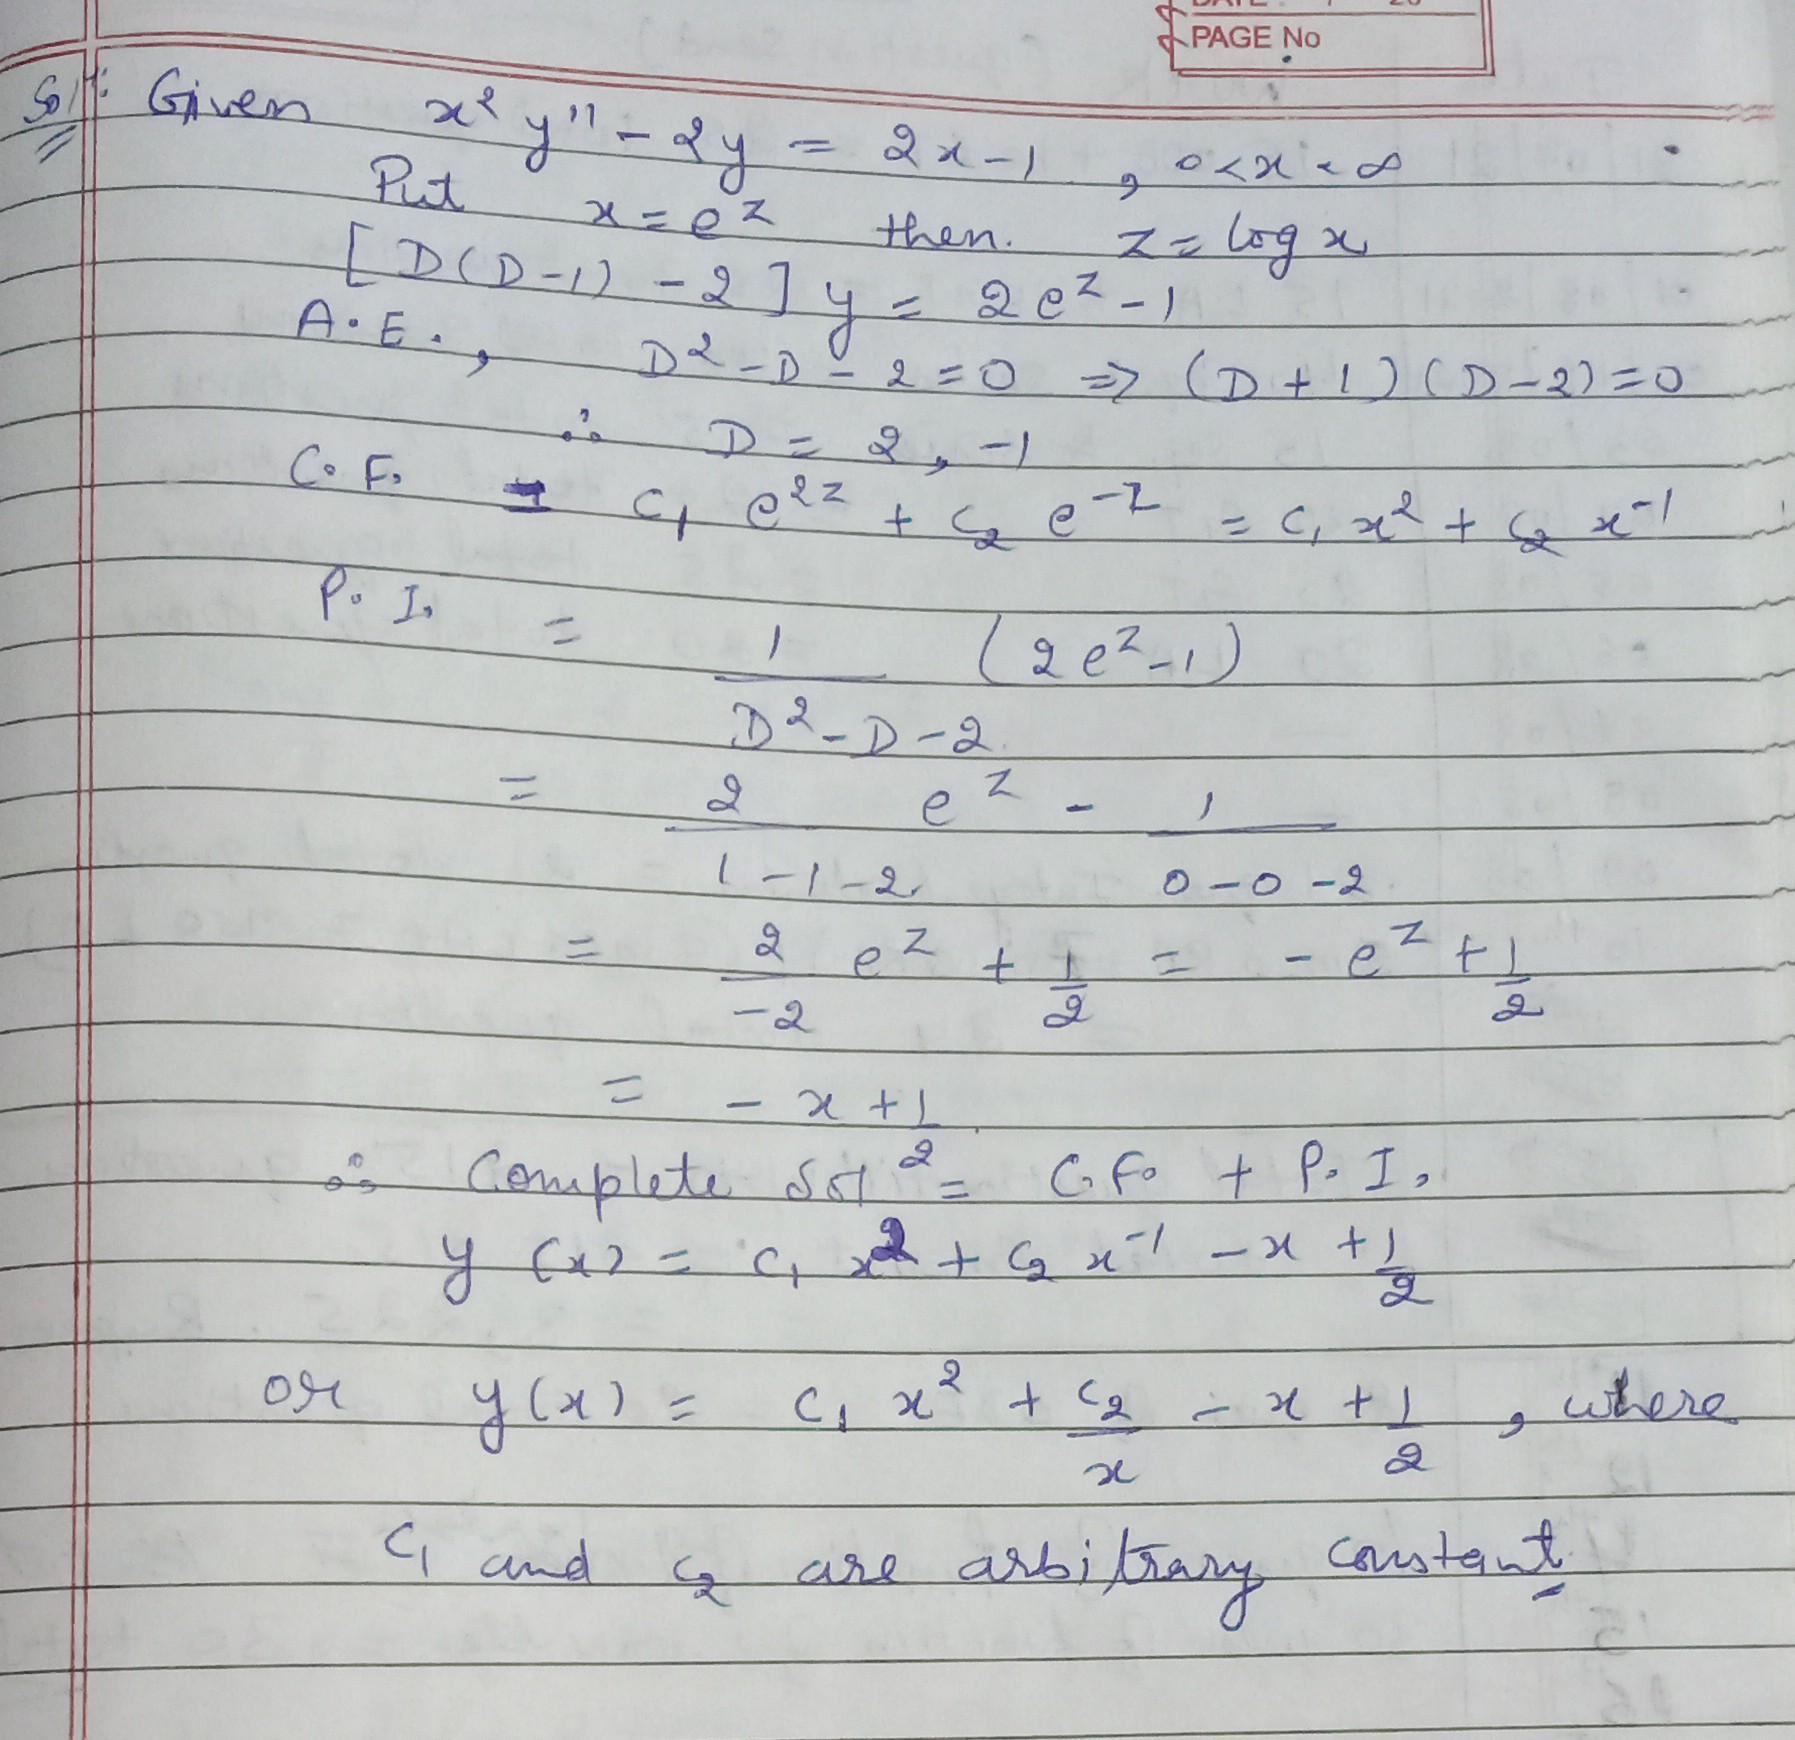 DATE: / 20
PAGE No
Solⁿ: Given x² y'' - 2y = 2x-1 , 0<x<∞
Put x = e^z then. z = log x
[D(D-1) - 2] y = 2e^z - 1
A.E., D² - D - 2 = 0 ⇒ (D+1)(D-2)=0
∴ D = 2, -1
C.F. = C₁ e^{2z} + C₂ e^{-z} = C₁ x² + C₂ x^{-1}
P.I. = 1/(D² - D - 2) (2e^z - 1)
= 2/(1-1-2) e^z - 1/(0-0-2)
= 2/-2 e^z + 1/2 = - e^z + 1/2
= - x + 1/2
∴ Complete Solⁿ = C.F. + P.I.
y(x) = C₁ x² + C₂ x^{-1} - x + 1/2
or y(x) = C₁ x² + C₂/x - x + 1/2 , where
C₁ and C₂ are arbitrary constant.